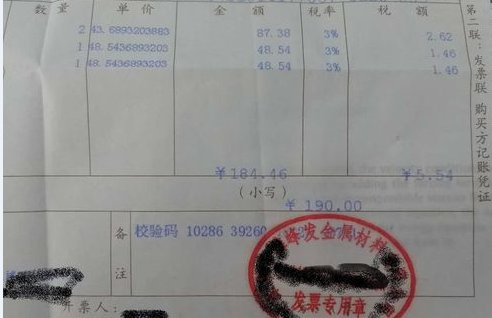 数量 单价 金额 税率 税额
2 43.6893203883 87.38 3% 2.62
1 48.5436893203 48.54 3% 1.46
1 48.5436893203 48.54 3% 1.46
￥184.46 ￥5.54
(小写) ￥190.00
备注 校验码 10286 39260
开票人：
第二联：发票联 购买方记账凭证
蜂发金属材料
发票专用章